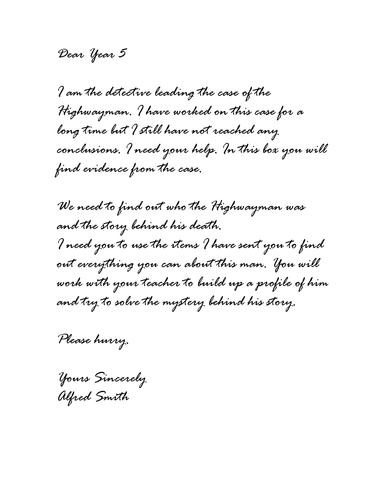 Dear Year 5
I am the detective leading the case of the
Highwayman. I have worked on this case for a
long time but I still have not reached any
conclusions. I need your help. In this box you will
find evidence from the case.
We need to find out who the Highwayman was
and the story behind his death.
I need you to use the items I have sent you to find
out everything you can about this man. You will
work with your teacher to build up a profile of him
and try to solve the mystery behind his story.
Please hurry.
Yours Sincerely
Alfred Smith